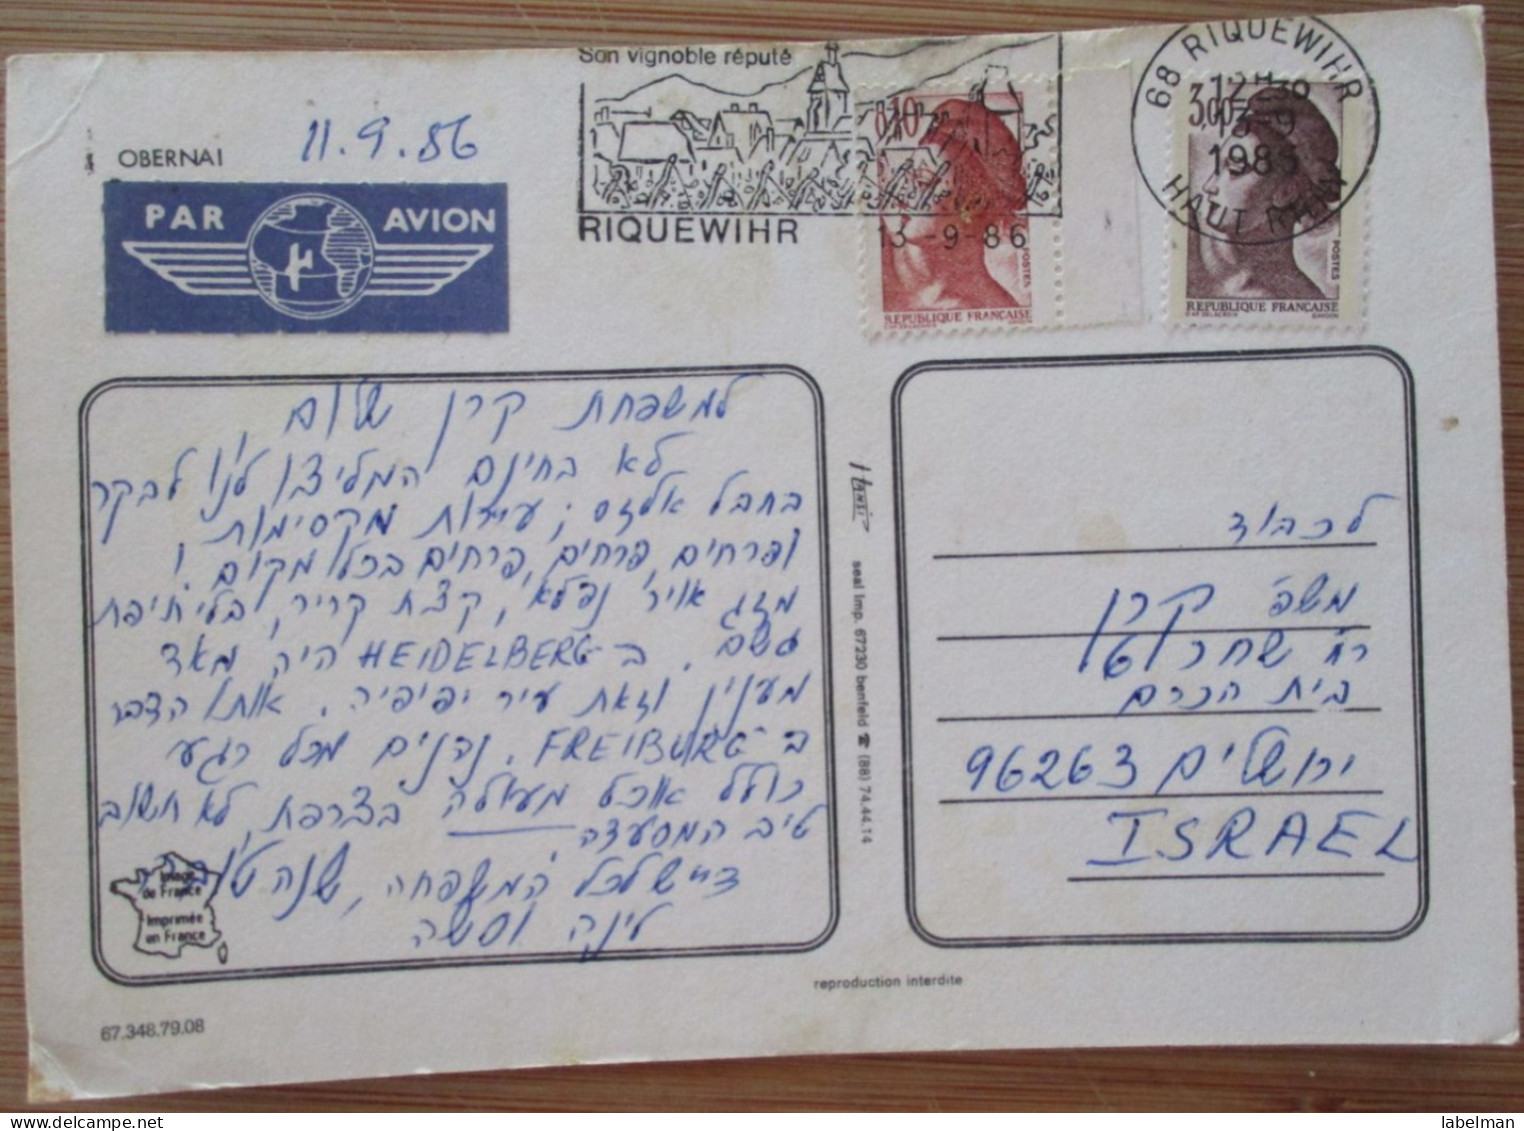 Son vignoble réputé
RIQUEWIHR
13-9-86
68 RIQUEWIHR
13-9
1986
HAUT RHIN
0,10
POSTES
REPUBLIQUE FRANÇAISE
3,00
POSTES
REPUBLIQUE FRANÇAISE
OBERNAI
11.9.86
PAR AVION
למשפחת קרן שלום,
לא בחינם המליצו לנו לבקר
בחבל אלזס; עיירות מקסימות
ופרחים, פרחים, פרחים בכל מקום!
מזג אויר נפלא, קצת קריר, בלי טיפת
גשם. ב-HEIDELBERG היה מאד
מענין וזאת עיר יפיפיה. אותו הדבר
ב-FREIBURG. נהנים מכל רגע
כולל אוכל מעולה בצרפת, לא חשוב
טיב המסעדה.
ד"ש לכל המשפחה, שנה טובה
לינה וסשה
Image
de France
Imprimée
en France
HANSI
seal imp. 67230 benfeld ☎ (88) 74.44.14
לכבוד
משפ' קרן
רח' שחר
בית הכרם
ירושלים 96263
ISRAEL
reproduction interdite
67.348.79.08
labelman
www.delcampe.net